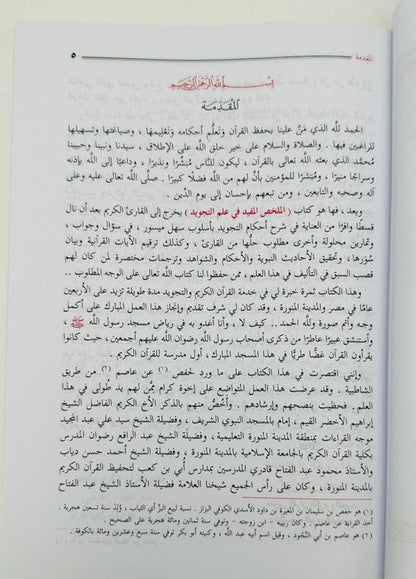 المقدمة
٥
بسم الله الرحمن الرحيم
المقدمة
الحمد لله الذي مَنَّ علينا بحفظ القرآن وتَعلُّم أحكامه وتَعْليمها ، وصياغتها وتسهيلها
للراغبين فيها . والصلاة والسلام على خير خلق الله على الإطلاق ، سيدنا ونبينا وحبيبنا
مُحمَّد الذي بعثه الله تعالى بالقرآن ، ليكون للنَّاس مُبشِّرًا ونذيرًا ، وداعيًا إلى الله بإذنه
وسراجًا منيرًا ، ومُبشِّرًا للمؤمنين بأنَّ لهم من الله فضلًا كبيرًا . صلَّى اللَّه عليه وعلى
آله وصحبه والتابعين ، ومن تبعهم بإحسان إلى يوم الدِّين .
وبعد، فها هو كتاب ( الملخص المفيد في علم التجويد ) يخرج إلى القارئ الكريم بعد أن نال
قسطًا وافرًا من العناية في شرح أحكام التجويد بأسلوب سهل ميسور ، في سؤال وجواب ،
وتمارين محلولة وأخرى مطلوب حلُّها من القارئ ، وكذلك ترقيم الآيات القرآنية وبيان
سُوَرها ، وتحقيق الأحاديث النبوية والأحكام والشواهد وترجمات مختصرة لمن كان لهم
قصب السبق في التأليف في هذا العلم ، ممن حفظوا لنا كتاب الله تعالى على الوجه المطلوب ..
وهذا الكتاب ثمرة خبرة لي في خدمة القرآن الكريم والتجويد مدة طويلة تزيد على الأربعين
عامًا في مصر والمدينة المنورة ، وقد كان لي شرف تقديم وإنجاز هذا العمل المبارك على أكمل
وجه وأتم صورة ولله الحمد .. كيف لا ، وأنا أغدو به في رياض مسجد رسول الله ﷺ ،
وأستنشق عبيرًا عاطرًا من ذكرى أصحاب رسول الله رضوان الله عليهم أجمعين، حيث كانوا
يقرأون القرآن غضًّا طريًّا في هذا المسجد المبارك ، أول مدرسة للقرآن الكريم .
وإنني اقتصرت في هذا الكتاب على ما ورد لحفص (١) عن عاصم (٢) من طريق
الشاطبية . وقد عرضت هذا العمل المتواضع على إخوة كرام ممَّن لهم يد طولى في هذا
العلم. فحظيت بنصحهم وإرشادهم . وأخصُّ منهم بالذكر الأخ الكريم الفاضل الشيخ
إبراهيم الأخضر القيم ، إمام بالمسجد النبوي الشريف ، وفضيلة الشيخ سيد علي عبد المجيد
موجه القراءات بمنطقة المدينة المنورة التعليمية ، وفضيلة الشيخ عبد الرافع رضوان المدرس
بكلية القرآن الكريم بالجامعة الإسلامية بالمدينة المنورة ، وفضيلة الشيخ أحمد حسن دياب
والأستاذ محمود عبد الفتاح قادري المدرسين بمدارس أبي بن كعب لتحفيظ القرآن الكريم
بالمدينة المنورة ، وكان على رأس الجميع شيخنا العلامة فضيلة الأستاذ الشيخ عبد الفتاح
(١) هو حفص بن سليمان بن المغيرة بن داود الأسدي الكوفي البزاز . نسبة لبيع البزّ أي الثياب ، وُلِدَ سنة تسعين هجرية .
أخذ القراءة عن عاصم . وكان ربيبه - ابن زوجته - وتوفي سنة ثمانين ومائة هجرية على الصحيح .
(٢) هو عاصم بن أبي النَّجُود ، وقيل اسم أبيه عبد الله ، وكنيته أبو بكر توفي سنة سبع وعشرين ومائة بالكوفة .